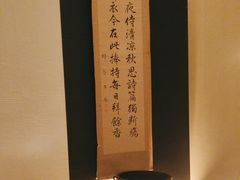 夜侍清凉秋思詩篇獨斷腸
衣今在此捧持每日拜餘香